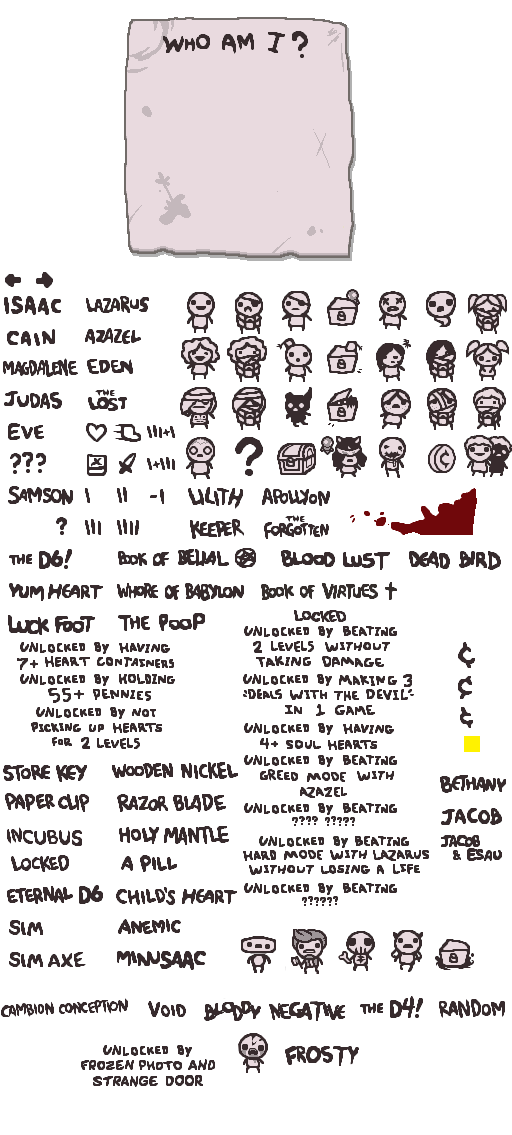 WHO AM I?
ISAAC LAZARUS
CAIN AZAZEL
MAGDALENE EDEN
JUDAS THE LOST
EVE |||+|
??? |+|||
?
SAMSON | || -| LILITH APOLLYON
? ||| |||| KEEPER THE FORGOTTEN
THE D6! BOOK OF BELIAL BLOOD LUST DEAD BIRD
YUM HEART WHORE OF BABYLON BOOK OF VIRTUES
LUCK FOOT THE POOP
LOCKED
UNLOCKED BY HAVING
7+ HEART CONTAINERS
UNLOCKED BY HOLDING
55+ PENNIES
UNLOCKED BY NOT
PICKING UP HEARTS
FOR 2 LEVELS
UNLOCKED BY BEATING
2 LEVELS WITHOUT
TAKING DAMAGE
UNLOCKED BY MAKING 3
"DEALS WITH THE DEVIL"
IN 1 GAME
UNLOCKED BY HAVING
4+ SOUL HEARTS
UNLOCKED BY BEATING
GREED MODE WITH
AZAZEL
UNLOCKED BY BEATING
???? ?????
UNLOCKED BY BEATING
HARD MODE WITH LAZARUS
WITHOUT LOSING A LIFE
UNLOCKED BY BEATING
??????
¢
¢
¢
STORE KEY WOODEN NICKEL
PAPER CLIP RAZOR BLADE
INCUBUS HOLY MANTLE
LOCKED A PILL
ETERNAL D6 CHILD'S HEART
SIM ANEMIC
SIM AXE MINUSAAC
BETHANY
JACOB
JACOB
& ESAU
CAMBION CONCEPTION VOID BLOODY NEGATIVE THE D4! RANDOM
UNLOCKED BY
FROZEN PHOTO AND
STRANGE DOOR
FROSTY